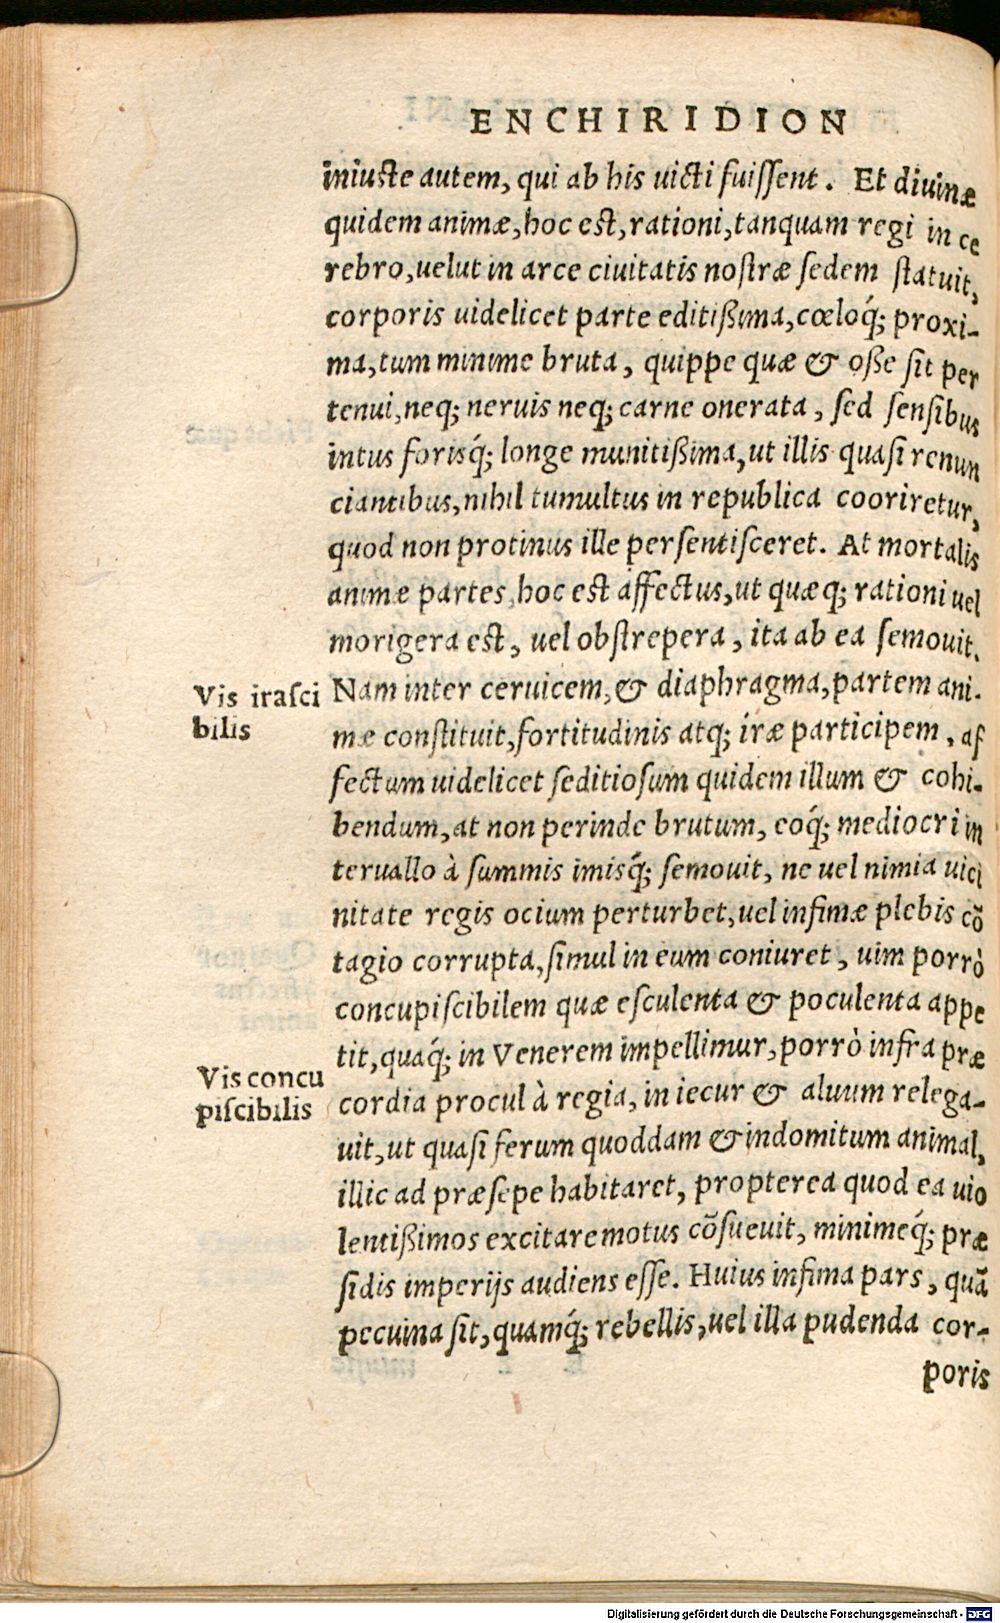 ENCHIRIDION
iniuste autem, qui ab his uicti fuissent. Et diuinæ
quidem animæ, hoc est, rationi, tanquam regi in ce
rebro, uelut in arce ciuitatis nostræ sedem statuit,
corporis uidelicet parte editißima, cœloq́; proxi-
ma, tum minime bruta, quippe quæ & oße sit per
tenui, neq; neruis neq; carne onerata, sed sensibus
intus forisq́; longe munitißima, ut illis quasi renun
ciantibus, nihil tumultus in republica cooriretur,
quod non protinus ille persentisceret. At mortalis
animæ partes, hoc est affectus, ut quæq; rationi uel
morigera est, uel obstrepera, ita ab ea semouit.
Vis irasci
bilis
Nam inter ceruicem, & diaphragma, partem ani-
mæ constituit, fortitudinis atq; iræ participem, af
fectum uidelicet seditiosum quidem illum & cohi-
bendum, at non perinde brutum, eoq́; mediocri in
teruallo à summis imisq́; semouit, ne uel nimia uici
nitate regis ocium perturbet, uel infimæ plebis cõ
tagio corrupta, simul in eum coniuret, uim porrò
concupiscibilem quæ esculenta & poculenta appe
tit, quaq́; in Venerem impellimur, porrò infra præ
Vis concu
piscibilis
cordia procul à regia, in iecur & aluum relega-
uit, ut quasi ferum quoddam & indomitum animal,
illic ad præsepe habitaret, propterea quod ea uio
lentißimos excitare motus cõsueuit, minimeq́; præ
sidis imperijs audiens esse. Huius infima pars, quã
pecuina sit, quamq́; rebellis, uel illa pudenda cor-
poris
Digitalisierung gefördert durch die Deutsche Forschungsgemeinschaft - DFG